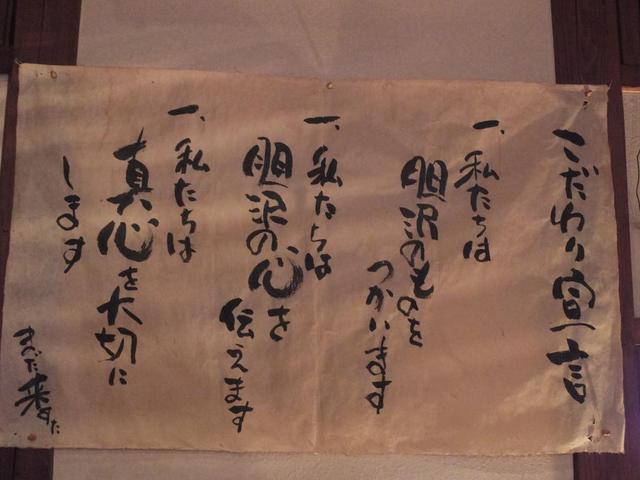 こだわり宣言
一、私たちは
胆沢のものを
つかいます
一、私たちは
胆沢の心を
伝えます
一、私たちは
真心を大切に
します
まだ来すた